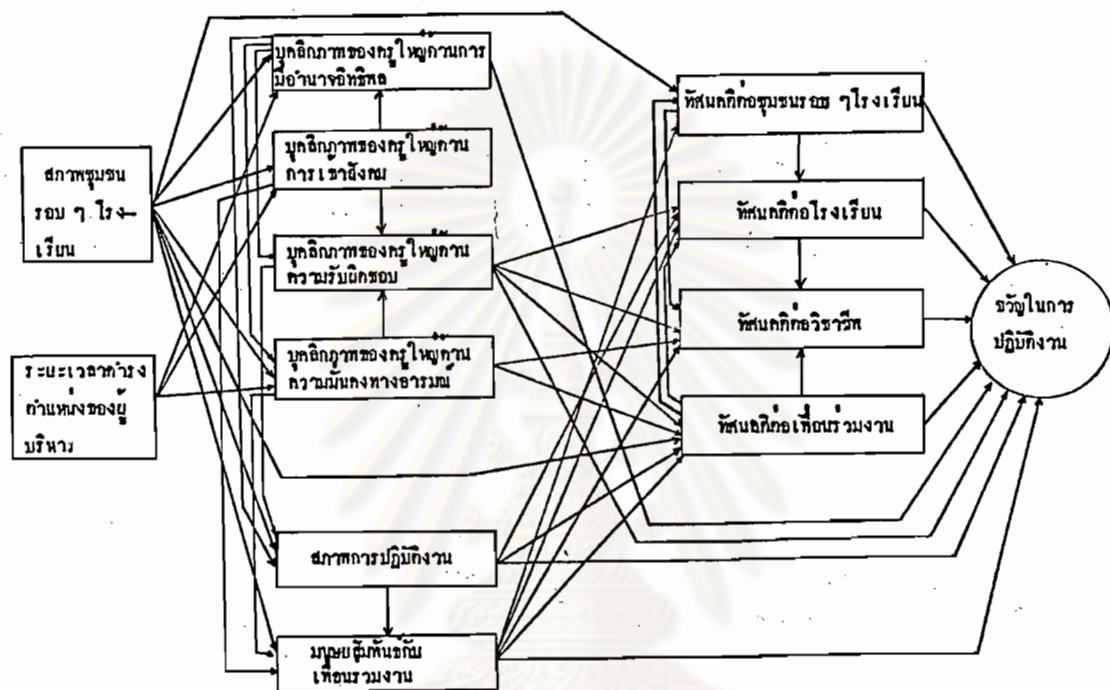 สภาพชุมชน
รอบ ๆ โรง-
เรียน
ระยะเวลาดำรง
ตำแหน่งของผู้
บริหาร
บุคลิกภาพของครูใหญ่ด้านการ
มีอำนาจอิทธิพล
บุคลิกภาพของครูใหญ่ด้าน
การเข้าสังคม
บุคลิกภาพของครูใหญ่ด้าน
ความรับผิดชอบ
บุคลิกภาพของครูใหญ่ด้าน
ความมั่นคงทางอารมณ์
สภาพการปฏิบัติงาน
มนุษยสัมพันธ์กับ
เพื่อนร่วมงาน
ทัศนคติต่อชุมชนรอบ ๆโรงเรียน
ทัศนคติต่อโรงเรียน
ทัศนคติต่อวิชาชีพ
ทัศนคติต่อเพื่อนร่วมงาน
ขวัญในการ
ปฏิบัติงาน